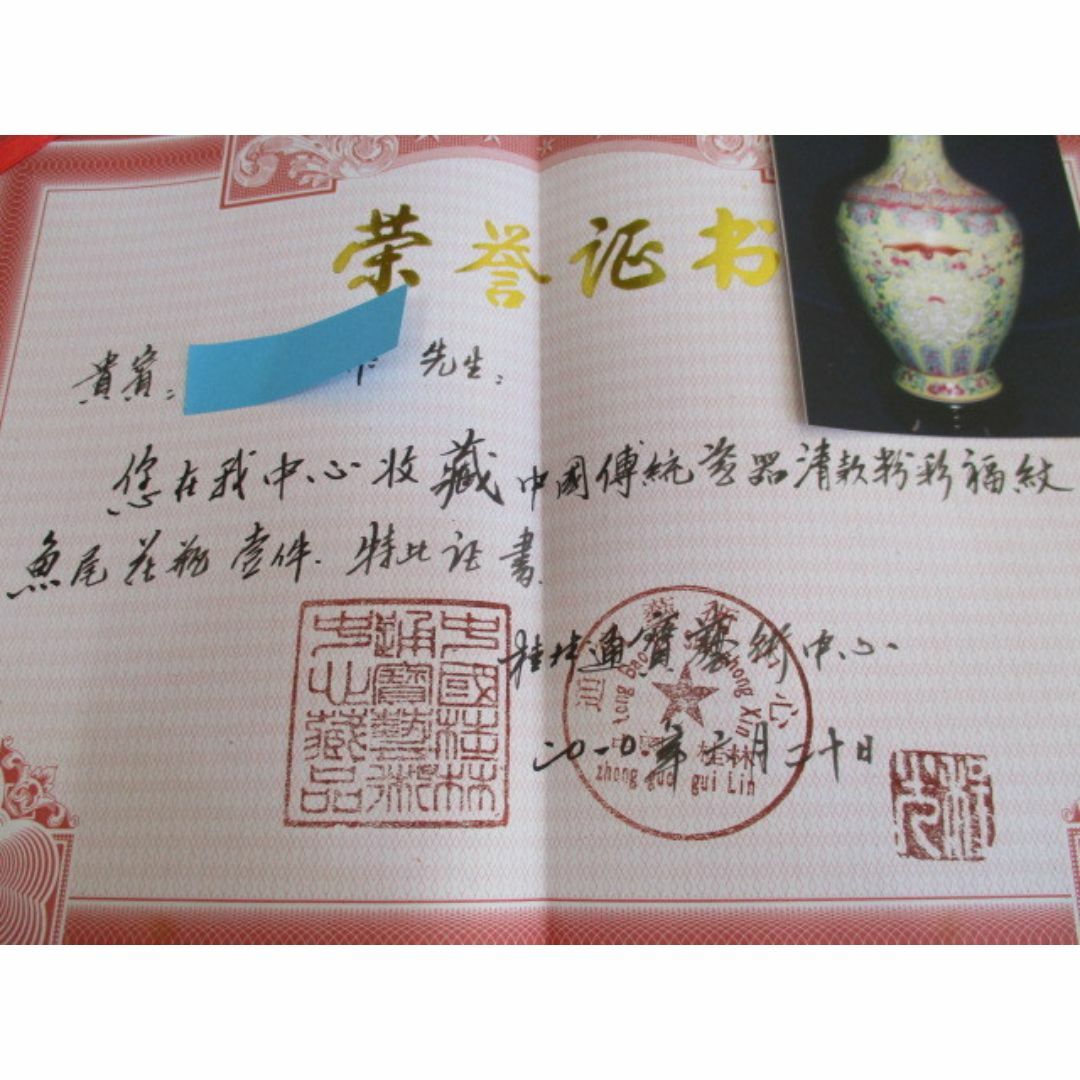 荣誉证书
貴賓： 先生：
您在我中心收藏中國傳統瓷器清款粉彩福紋
魚尾花瓶壹件.特此证書.
桂林通寶藝術中心
二〇一〇.年六月二十日
中國桂林
通寶藝術
中心藏品
通寶藝術中心
Tong Bao Zhong Xin
中国 桂林
zhong guo gui Lin